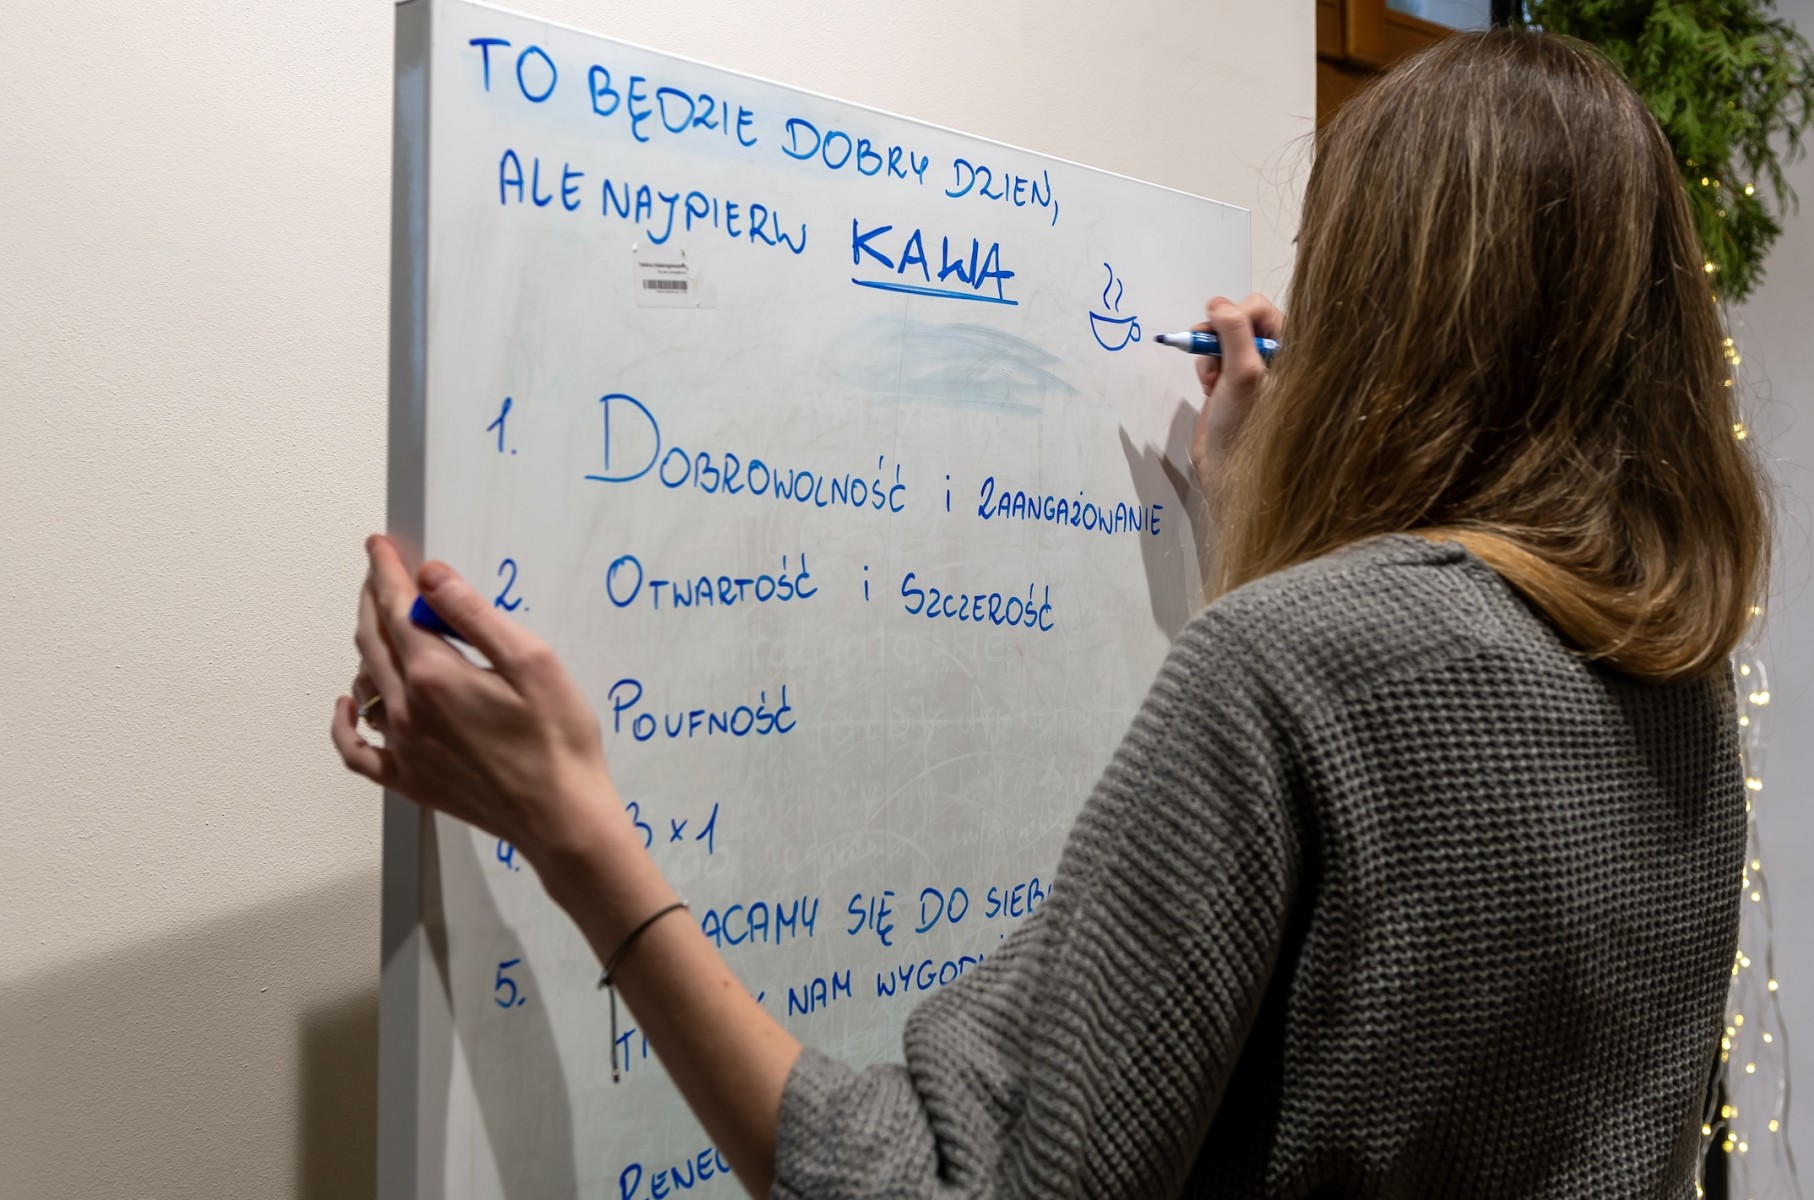 TO BĘDZIE DOBRY DZIEŃ,
ALE NAJPIERW KAWA
1. DOBROWOLNOŚĆ i ZAANGAŻOWANIE
2. OTWARTOŚĆ i SZCZEROŚĆ
POUFNOŚĆ
4. 3 x 1
SIĘ DO
5. NAM